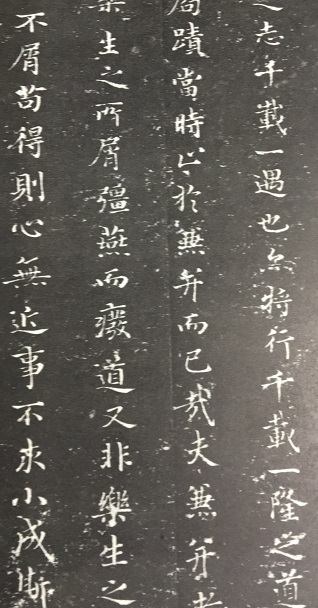 之志千載一遇也亦將行千載一隆之道
局蹟當時止於兼并而已哉夫兼并者
樂生之所屑彊燕而癈道又非樂生之
不屑苟得則心無近事不求小成斯